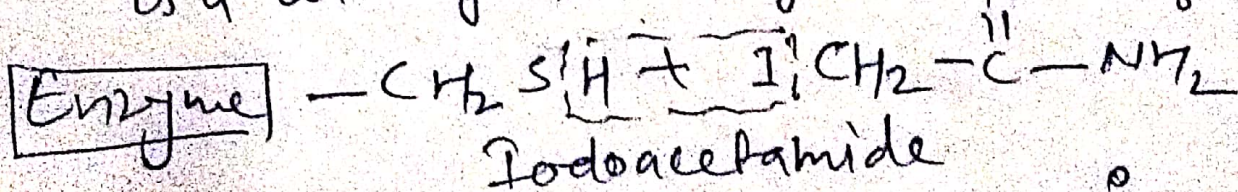 Enzyme - CH2 S H + I CH2 - C - NH2
Iodoacetamide